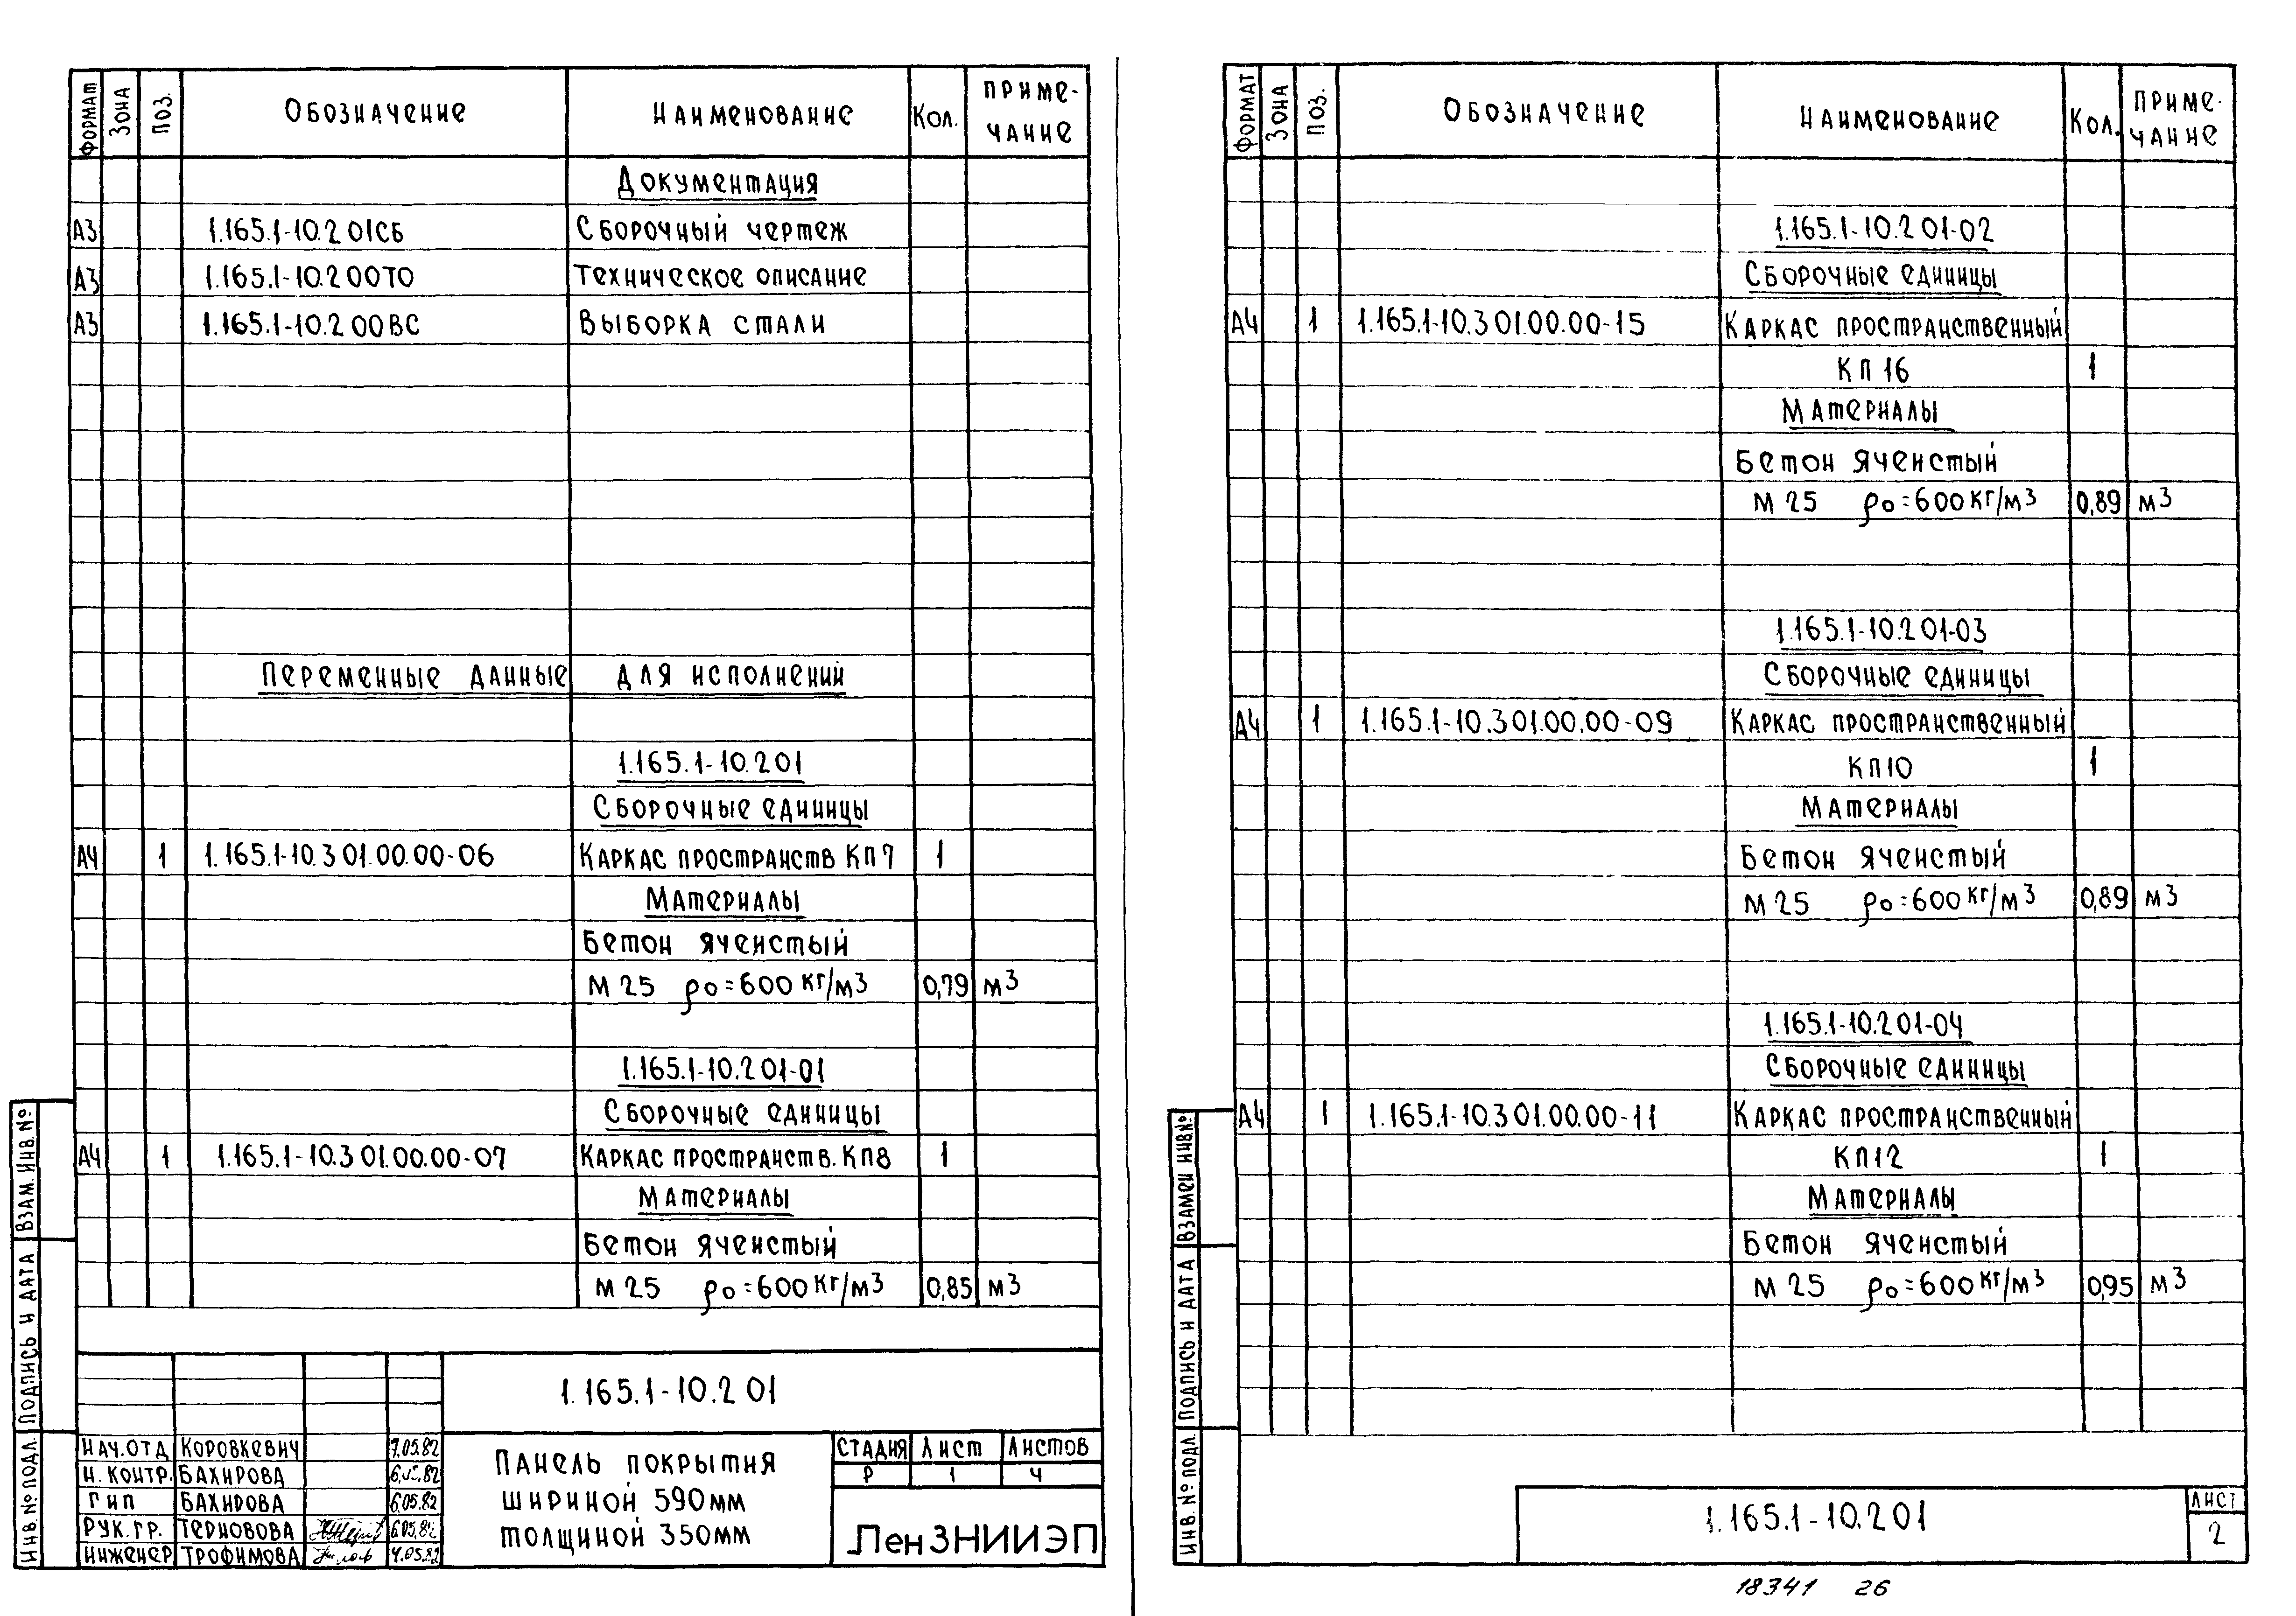 Формат Зона Поз. Обозначение Наименование Кол. Приме-
чание
Документация
А3 1.165.1-10.2 01СБ Сборочный чертеж
А3 1.165.1-10.2 00ТО Техническое описание
А3 1.165.1-10.2 00ВС Выборка стали
Переменные данные для исполнений
1.165.1-10.2 01
Сборочные единицы
А4 1 1.165.1-10.3 01.00.00-06 Каркас пространств КП7 1
Материалы
Бетон ячеистый
М 25 ρо=600 кг/м3 0,79 м3
1.165.1-10.2 01-01
Сборочные единицы
А4 1 1.165.1-10.3 01.00.00-07 Каркас пространств. КП8 1
Материалы
Бетон ячеистый
М 25 ρо=600 кг/м3 0,85 м3
Взам. инв. №
Подпись и дата
Инв. № подл.
1.165.1-10.2 01
Нач. отд Коровкевич 7.05.82
Н. контр. Бахирова 6.05.82
Гип Бахирова 6.05.82
Рук. гр. Терновова 6.05.82
Инженер Трофимова 4.05.82
Панель покрытия
шириной 590мм
толщиной 350мм
Стадия Лист Листов
Р 1 4
ЛенЗНИИЭП
Формат Зона Поз. Обозначение Наименование Кол. Приме-
чание
1.165.1-10.2 01-02
Сборочные единицы
А4 1 1.165.1-10.3 01.00.00-15 Каркас пространственный
КП 16 1
Материалы
Бетон ячеистый
М 25 ρо=600 кг/м3 0,89 м3
1.165.1-10.2 01-03
Сборочные единицы
А4 1 1.165.1-10.3 01.00.00-09 Каркас пространственный
КП10 1
Материалы
Бетон ячеистый
М 25 ρо=600 кг/м3 0,89 м3
1.165.1-10.2 01-04
Сборочные единицы
А4 1 1.165.1-10.3 01.00.00-11 Каркас пространственный
КП12 1
Материалы
Бетон ячеистый
М 25 ρо=600 кг/м3 0,95 м3
Взамен инв.№
Подпись и дата
Инв. № подл.
1.165.1-10.2 01
Лист
2
18341 26